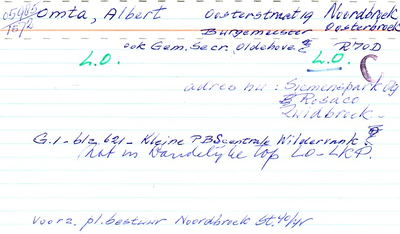 Omta, Albert Oosterstraat 19 Noordbroek
Burgemeester Oosterbroek
ook Gem. Secr. Oldehove R70D
L.O. L.O.
adres nu: Siemenspark
Zuidbroek
G.1 - blz. 621 - Kleine PBS centrale Wildervank
landelijke top LO-LKP.
Voorz. pl. bestuur Noordbroek St. 40/45